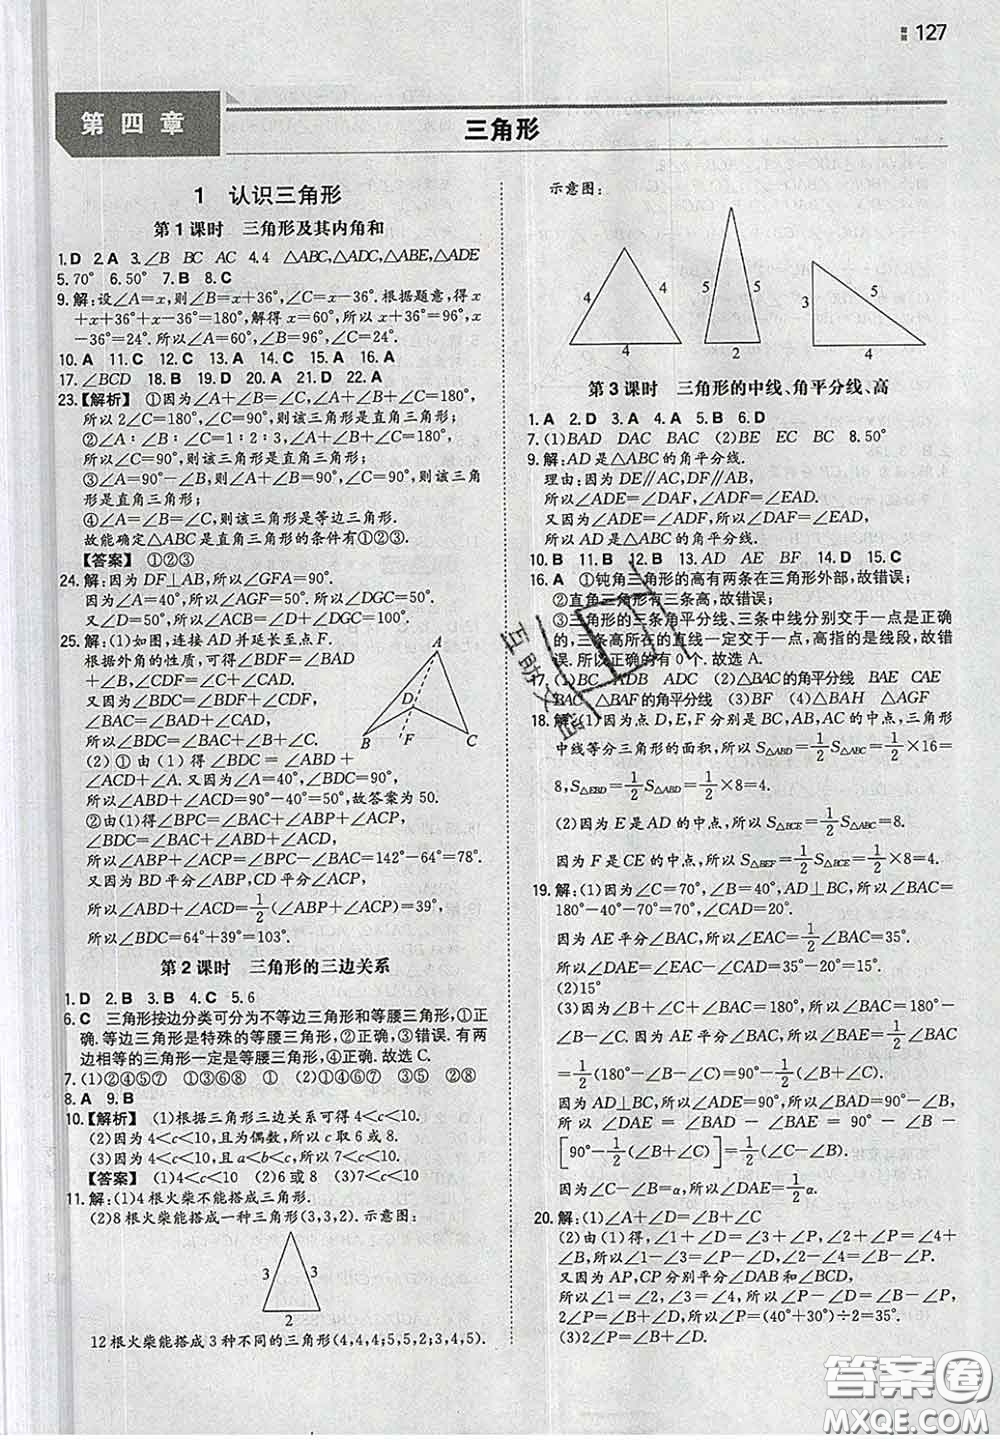 答案 127
第四章
三角形
1 认识三角形
第1课时 三角形及其内角和
1.D 2.A 3.∠B BC AC 4.4 △ABC,△ADC,△ABE,△ADE
5.70° 6.50° 7.B 8.C
9.解:设∠A=x,则∠B=x+36°,∠C=x-36°.根据题意,得
x+x+36°+x-36°=180°,解得x=60°,所以x+36°=96°,
x-36°=24°.所以∠A=60°,∠B=96°,∠C=24°.
10.A 11.C 12.C 13.A 14.C 15.A 16.A
17.∠BCD 18.B 19.D 20.A 21.D 22.A
23.【解析】 ①因为∠A+∠B=∠C,∠A+∠B+∠C=180°,
所以2∠C=180°,∠C=90°,则该三角形是直角三角形;
②∠A∶∠B∶∠C=1∶2∶3,∠A+∠B+∠C=180°,
所以∠C=90°,则该三角形是直角三角形;
③∠A=90°-∠B,则∠A+∠B=90°,∠C=90°,则该三角
形是直角三角形;
④∠A=∠B=∠C,则该三角形是等边三角形.
故能确定△ABC是直角三角形的条件有①②③.
【答案】 ①②③
24.解:因为DF⊥AB,所以∠GFA=90°.
因为∠A=40°,所以∠AGF=50°.所以∠DGC=50°.
又∠D=50°,所以∠DGC+∠D=100°.
25.解:(1)如图,连接AD并延长至点F.
根据外角的性质,可得∠BDF=∠BAD
+∠B,∠CDF=∠C+∠CAD,
又因为∠BDC=∠BDF+∠CDF,
∠BAC=∠BAD+∠CAD,
所以∠BDC=∠BAC+∠B+∠C.
(2)①由(1)得∠BDC=∠ABD+
∠ACD+∠A.又因为∠A=40°,∠BDC=90°,
所以∠ABD+∠ACD=90°-40°=50°,故答案为50.
②由(1)得∠BPC=∠BAC+∠ABP+∠ACP,
∠BDC=∠BAC+∠ABD+∠ACD,
所以∠ABP+∠ACP=∠BPC-∠BAC=142°-64°=78°.
又因为BD平分∠ABP,CD平分∠ACP,
所以∠ABD+∠ACD=1/2(∠ABP+∠ACP)=39°,
所以∠BDC=64°+39°=103°.
A
D
B
F
C
第2课时 三角形的三边关系
1.D 2.B 3.B 4.C 5.6
6.C 三角形按边分类可分为不等边三角形和等腰三角形,①正
确.等边三角形是特殊的等腰三角形,②正确,③错误.有两
边相等的三角形一定是等腰三角形,④正确.故选C.
7.(1)②④⑤⑦ ①③⑥⑧ ① (2)④⑥⑦ ③⑤ ②⑧
8.A 9.B
10.【解析】 (1)根据三角形三边关系可得4<c<10.
(2)因为4<c<10,且为偶数,所以c取6或8.
(3)因为4<c<10,且a<b<c,所以7<c<10.
【答案】 (1)4<c<10 (2)6或8 (3)7<c<10
11.解:(1)4根火柴不能搭成三角形.
(2)8根火柴能搭成一种三角形(3,3,2).示意图:
3
3
2
12根火柴能搭成3种不同的三角形(4,4,4;5,5,2;3,4,5).
示意图:
4
4
4
5
5
2
3
5
4
第3课时 三角形的中线、角平分线、高
1.A 2.D 3.A 4.A 5.B 6.D
7.(1)BAD DAC BAC (2)BE EC BC 8.50°
9.解:AD是△ABC的角平分线.
理由:因为DE∥AC,DF∥AB,
所以∠ADE=∠DAF,∠ADF=∠EAD.
又因为∠ADE=∠ADF,所以∠DAF=∠EAD,
所以AD是△ABC的角平分线.
10.B 11.B 12.B 13.AD AE BF 14.D 15.C
16.A ①钝角三角形的高有两条在三角形外部,故错误;
②直角三角形有三条高,故错误;
③三角形的三条角平分线、三条中线分别交于一点是正确
的,三条高所在的直线一定交于一点,高指的是线段,故错
误.所以正确的有0个.故选A.
17.(1)BC ADB ADC (2)△ABC的角平分线 BAE CAE
BAC △BAF的角平分线 (3)BF (4)△BAH △AGF
18.解:(1)因为点D,E,F分别是BC,AB,AC的中点,三角形
中线等分三角形的面积,所以S△ABD=1/2S△ABC=1/2×16=
8,S△EBD=1/2S△ABD=1/2×8=4.
(2)因为E是AD的中点,所以S△BCE=1/2S△ABC=8.
因为F是CE的中点,所以S△BEF=1/2S△BCE=1/2×8=4.
19.解:(1)因为∠C=70°,∠B=40°,AD⊥BC,所以∠BAC=
180°-40°-70°=70°,∠CAD=20°.
因为AE平分∠BAC,所以∠EAC=1/2∠BAC=35°.
所以∠DAE=∠EAC-∠CAD=35°-20°=15°.
(2)15°
(3)因为∠B+∠C+∠BAC=180°,所以∠BAC=180°-
∠B-∠C.因为AE平分∠BAC,所以∠BAE=1/2∠BAC
=1/2(180°-∠B-∠C)=90°-1/2(∠B+∠C).
因为AD⊥BC,所以∠ADE=90°,所以∠BAD=90°-∠B,
所以∠DAE=∠BAD-∠BAE=90°-∠B-
[90°-1/2(∠B+∠C)]=1/2(∠C-∠B).
因为∠C-∠B=α,所以∠DAE=1/2α.
20.解:(1)∠A+∠D=∠B+∠C
(2)由(1)得,∠1+∠D=∠3+∠P,∠2+∠P=∠4+
∠B,所以∠1-∠3=∠P-∠D,∠2-∠4=∠B-∠P.
又因为AP,CP分别平分∠DAB和∠BCD,
所以∠1=∠2,∠3=∠4,所以∠P-∠D=∠B-∠P,
2∠P=∠B+∠D,所以∠P=(40°+30°)÷2=35°.
(3)2∠P=∠B+∠D.
互助文馆
答案圈
MXQE.COM